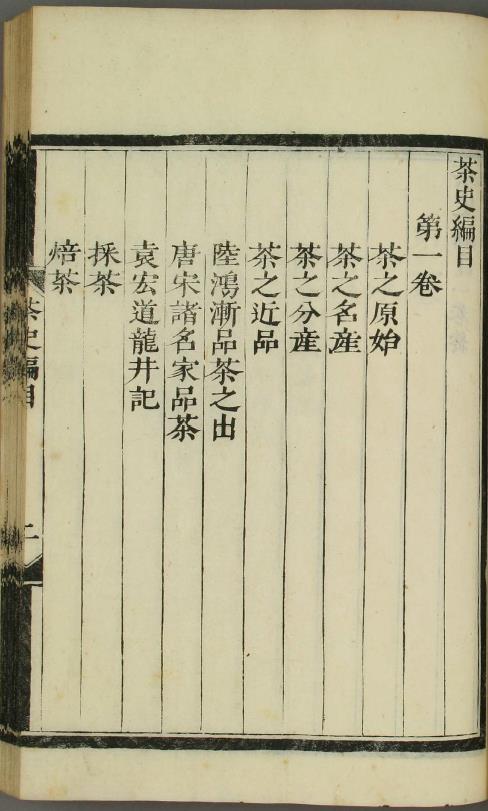 茶史編目
第一卷
茶之原始
茶之名産
茶之分産
茶之近品
陸鴻漸品茶之出
唐宋諸名家品茶
袁宏道龍井記
採茶
焙茶
茶史編目